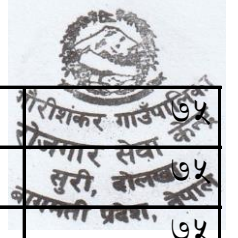 गौरीशंकर गाउँपालिका
रोजगार सेवा केन्द्र
सुरी, दोलखा
बागमती प्रदेश, नेपाल
७५
७५
७५